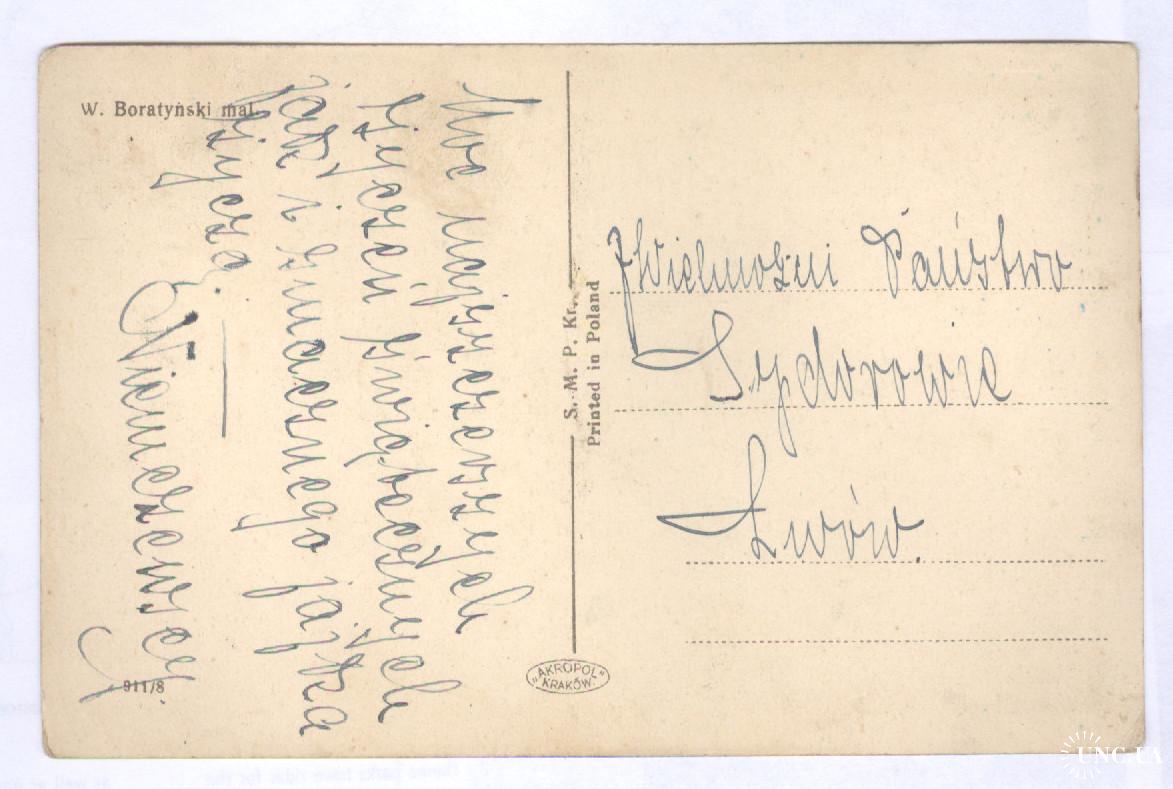 W. Boratyński mal.
Moc najszczerszych
życzeń świątecznych
jak i smacznego jajka
życzą
Niemczewscy
911/8
S. M. P. Kr.
Printed in Poland
"AKROPOL"
KRAKÓW.
JWielmożni Państwo
Sydorowie
Lwów.
UNC.UA